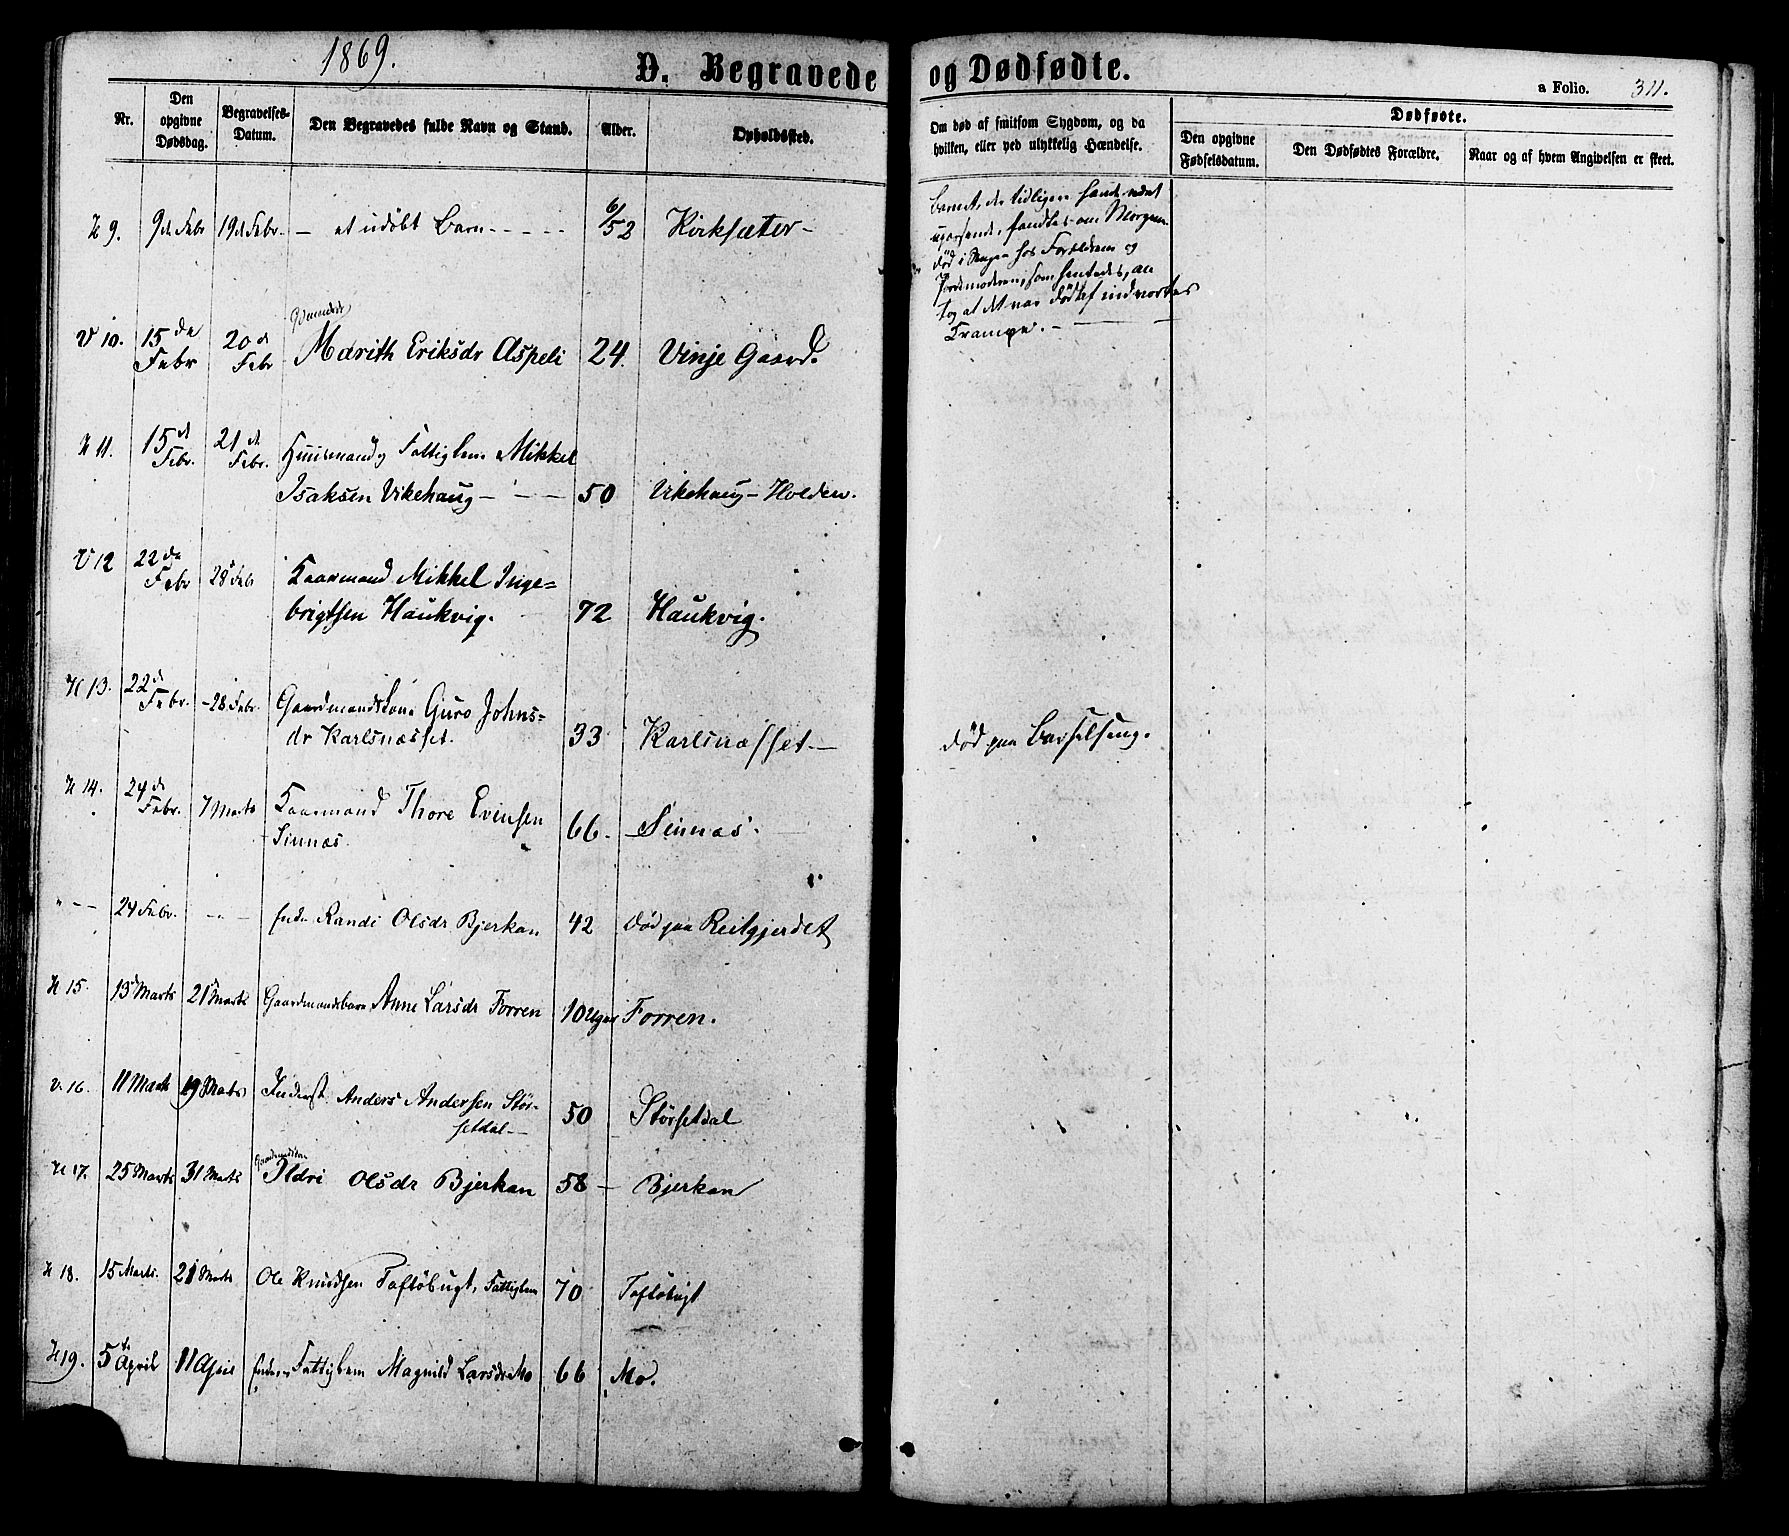 1869.
D. Begravede og Dødfødte.
a Folio. 311.
Nr. Den opgivne Dødsdag. Begravelses-Datum. Den Begravedes fulde Navn og Stand. Alder. Opholdssted. Om død af smitsom Sygdom, og da hvilken, eller ved ulykkelig Hændelse. Dødfødte. Den opgivne Fødselsdatum. Den Dødfødtes Forældre. Naar og af hvem Angivelsen er skeet.
H 9. 9de Febr 19de Febr. — et udøbt Barn - - - - - 6/52 Kirksæter -
Barnet, der tidligere havde været
fandtes om Morgenen
død i Sengen hos Forældrene og
Jordemoderen, som hentedes, an
tog at det var dødt af indvortes
Krampe. - —
V 10. 15 de Febr 20 d Febr
Marith Eriksdr Aspeli 24. Vinje Gaard.
H 11. 15 d Febr. 21 d Febr. Huusmand og Fattiglem Mikkel
Isaksen Vikehaug - - — 50 Vikehaug - Holden.
V 12 22 de Febr 28 Feb Kaarmand Mikkel Inge=
brigtsen Haukvig. 72 Haukvig.
H 13. 22 d Febr. - 28 Febr. Gaardmandskone Guro Johns-
dr Karlsnæsset. 33 Karlsnæsset. — død paa Barselseng.
H 14. 24 de Febr. 7 Marts Kaarmand Thore Evensen
Sinnæs. 66. - Sinnæs. —
" — 24 Febr. - " - Randi Olsdr Bjerkan 42 død paa Reitgjerdet
H 15. 13 Marts 21 Marts Gaardmandsbarn Anne Larsdr Forren 10 Uger Forren.
V. 16. 11 Marts 19 Marts Inderst. Anders Andersen Stør-
setdal - 50 Størsetdal
H 17. 25 Marts 31 Marts Gaardmandskone
Ildri Olsdr Bjerkan 58 — Bjerkan
H 18. 15 Marts. 21 Marts Ole Knudsen Taftøbugt, Fattiglem 70 Taftøbugt
H 19. 5 April 11 April Fattiglem Magnild Larsdr Mo 66 Mo.